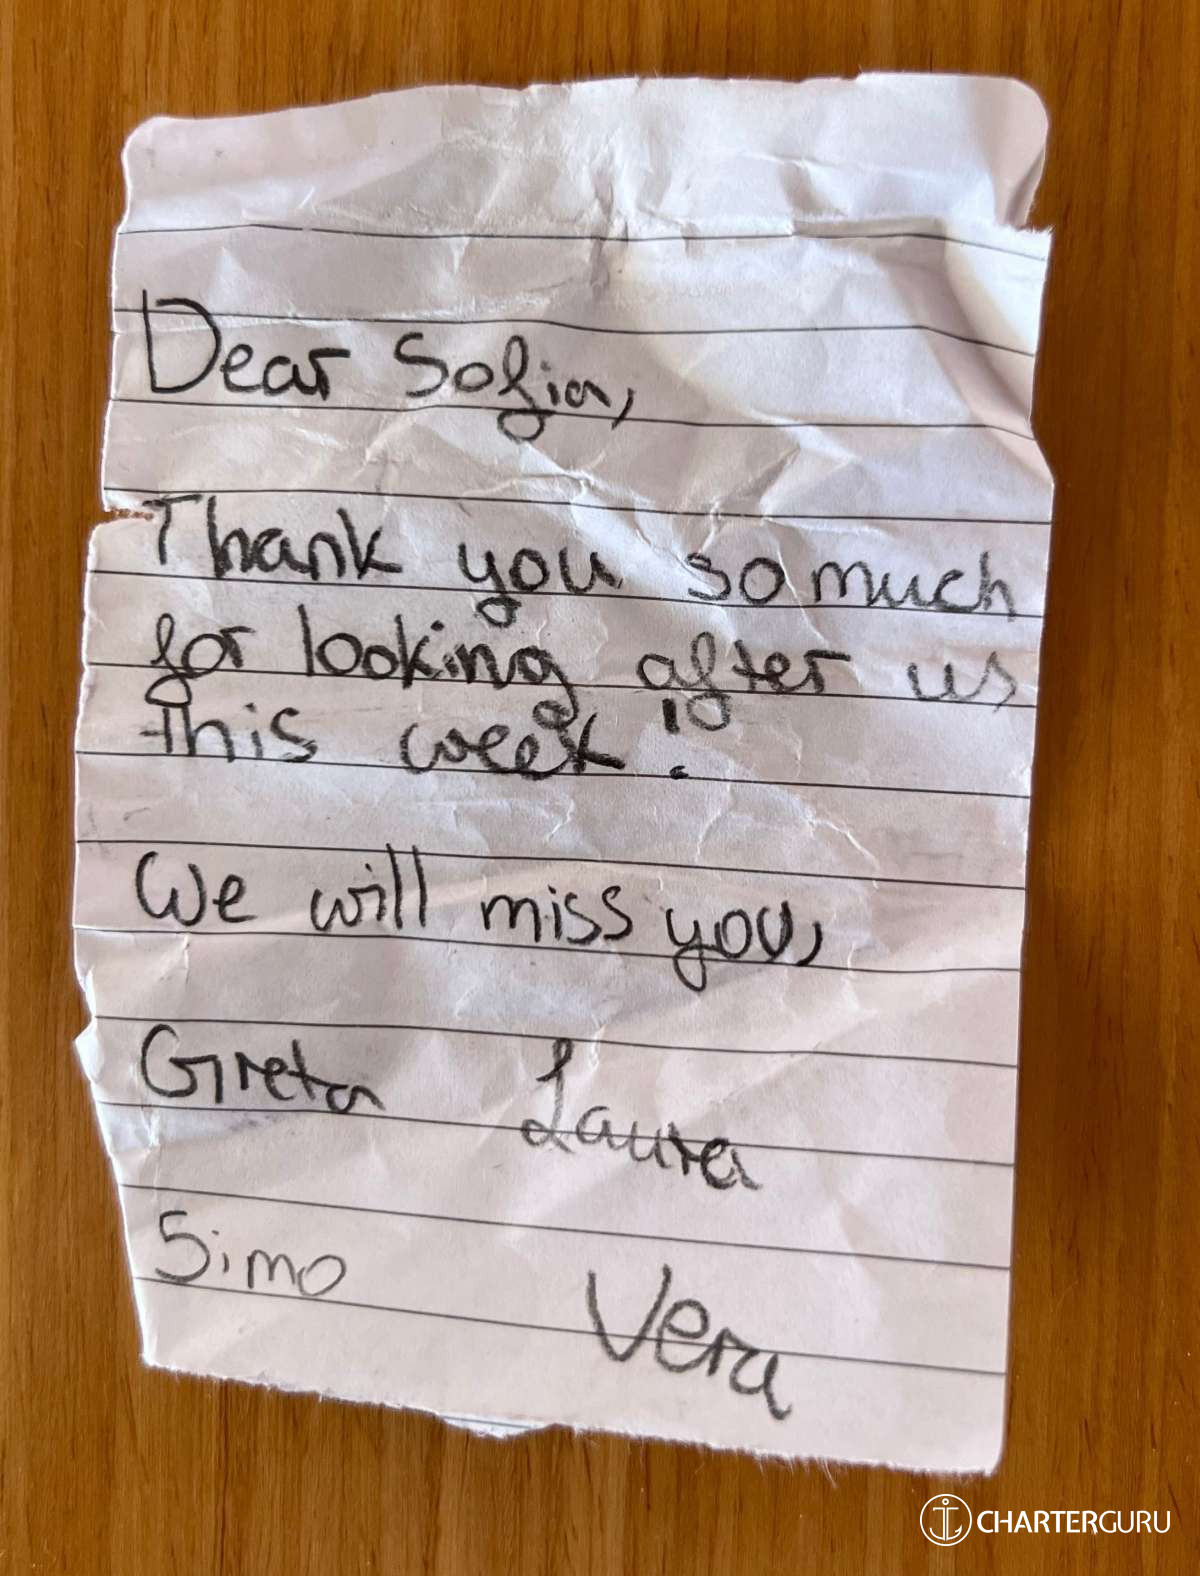 Dear Sofia,
Thank you so much
for looking after us
this week!
We will miss you,
Greta Laura
Simo Vera
CHARTERGURU